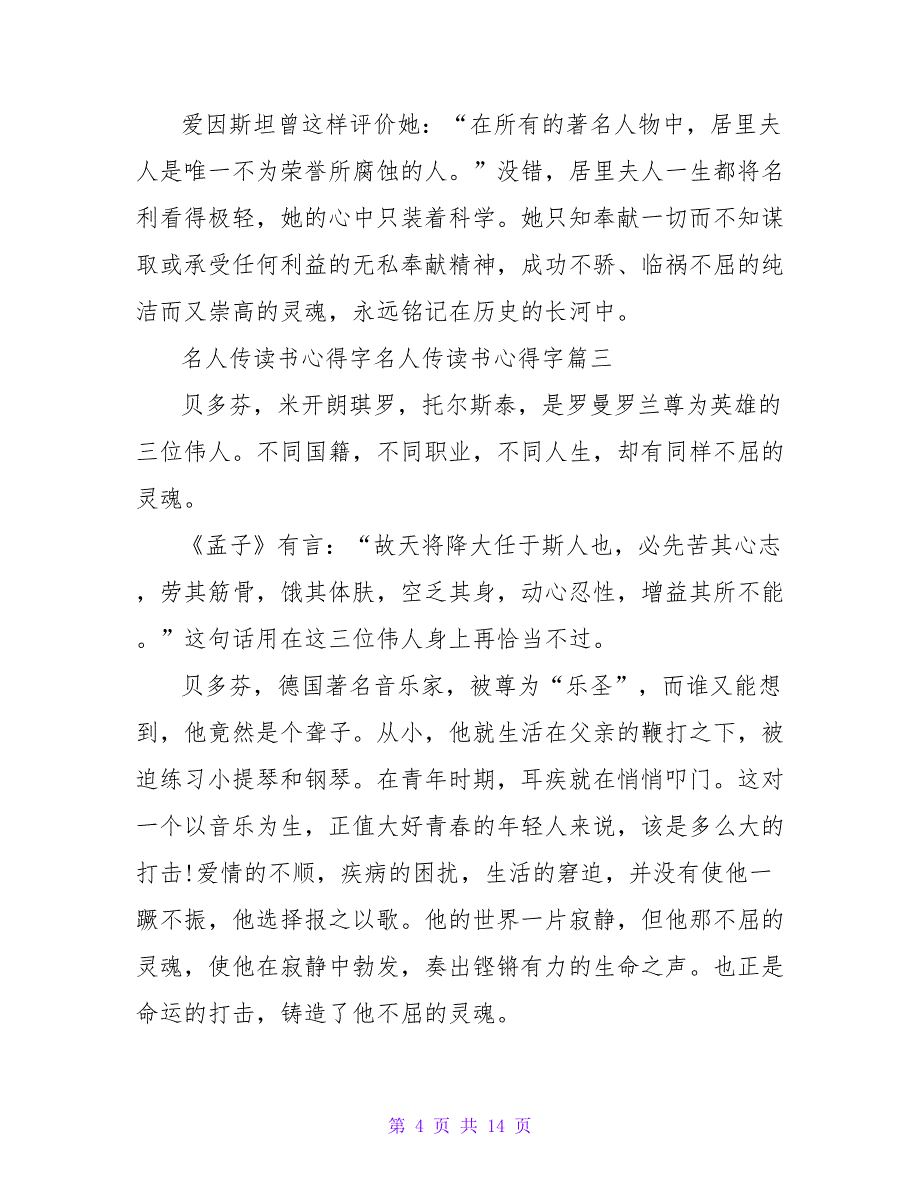 爱因斯坦曾这样评价她：“在所有的著名人物中，居里夫
人是唯一不为荣誉所腐蚀的人。”没错，居里夫人一生都将名
利看得极轻，她的心中只装着科学。她只知奉献一切而不知谋
取或承受任何利益的无私奉献精神，成功不骄、临祸不屈的纯
洁而又崇高的灵魂，永远铭记在历史的长河中。
名人传读书心得字名人传读书心得字篇三
贝多芬，米开朗琪罗，托尔斯泰，是罗曼罗兰尊为英雄的
三位伟人。不同国籍，不同职业，不同人生，却有同样不屈的
灵魂。
《孟子》有言：“故天将降大任于斯人也，必先苦其心志
，劳其筋骨，饿其体肤，空乏其身，动心忍性，增益其所不能
。”这句话用在这三位伟人身上再恰当不过。
贝多芬，德国著名音乐家，被尊为“乐圣”，而谁又能想
到，他竟然是个聋子。从小，他就生活在父亲的鞭打之下，被
迫练习小提琴和钢琴。在青年时期，耳疾就在悄悄叩门。这对
一个以音乐为生，正值大好青春的年轻人来说，该是多么大的
打击!爱情的不顺，疾病的困扰，生活的窘迫，并没有使他一
蹶不振，他选择报之以歌。他的世界一片寂静，但他那不屈的
灵魂，使他在寂静中勃发，奏出铿锵有力的生命之声。也正是
命运的打击，铸造了他不屈的灵魂。
第 4 页 共 14 页